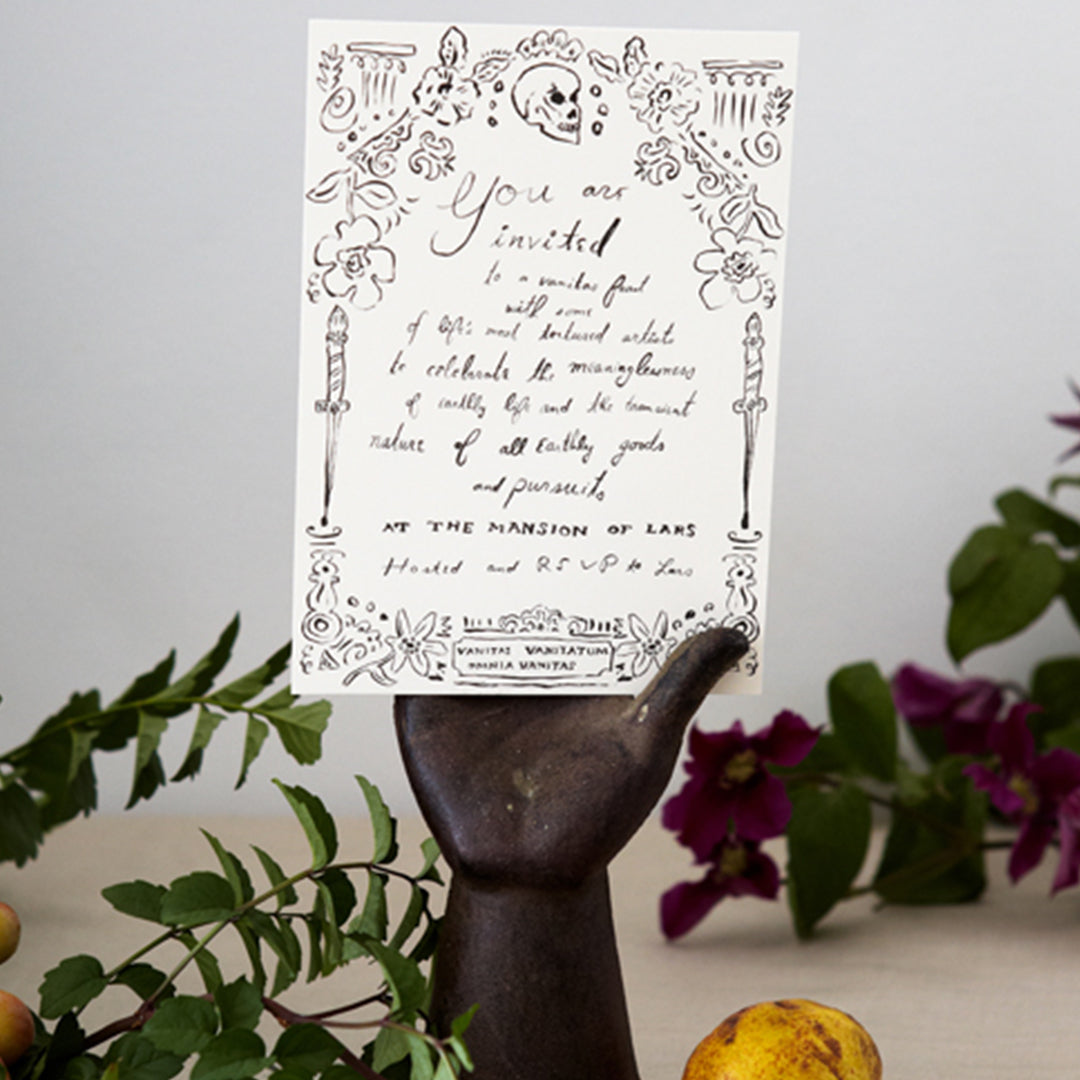 You are
invited
to a vanitas feast
with some
of life's most tortured artists
to celebrate the meaninglessness
of earthly life and the transient
nature of all Earthly goods
and pursuits
AT THE MANSION OF LARS
Hosted and RSVP to Lars
VANITAS VANITATUM
OMNIA VANITAS